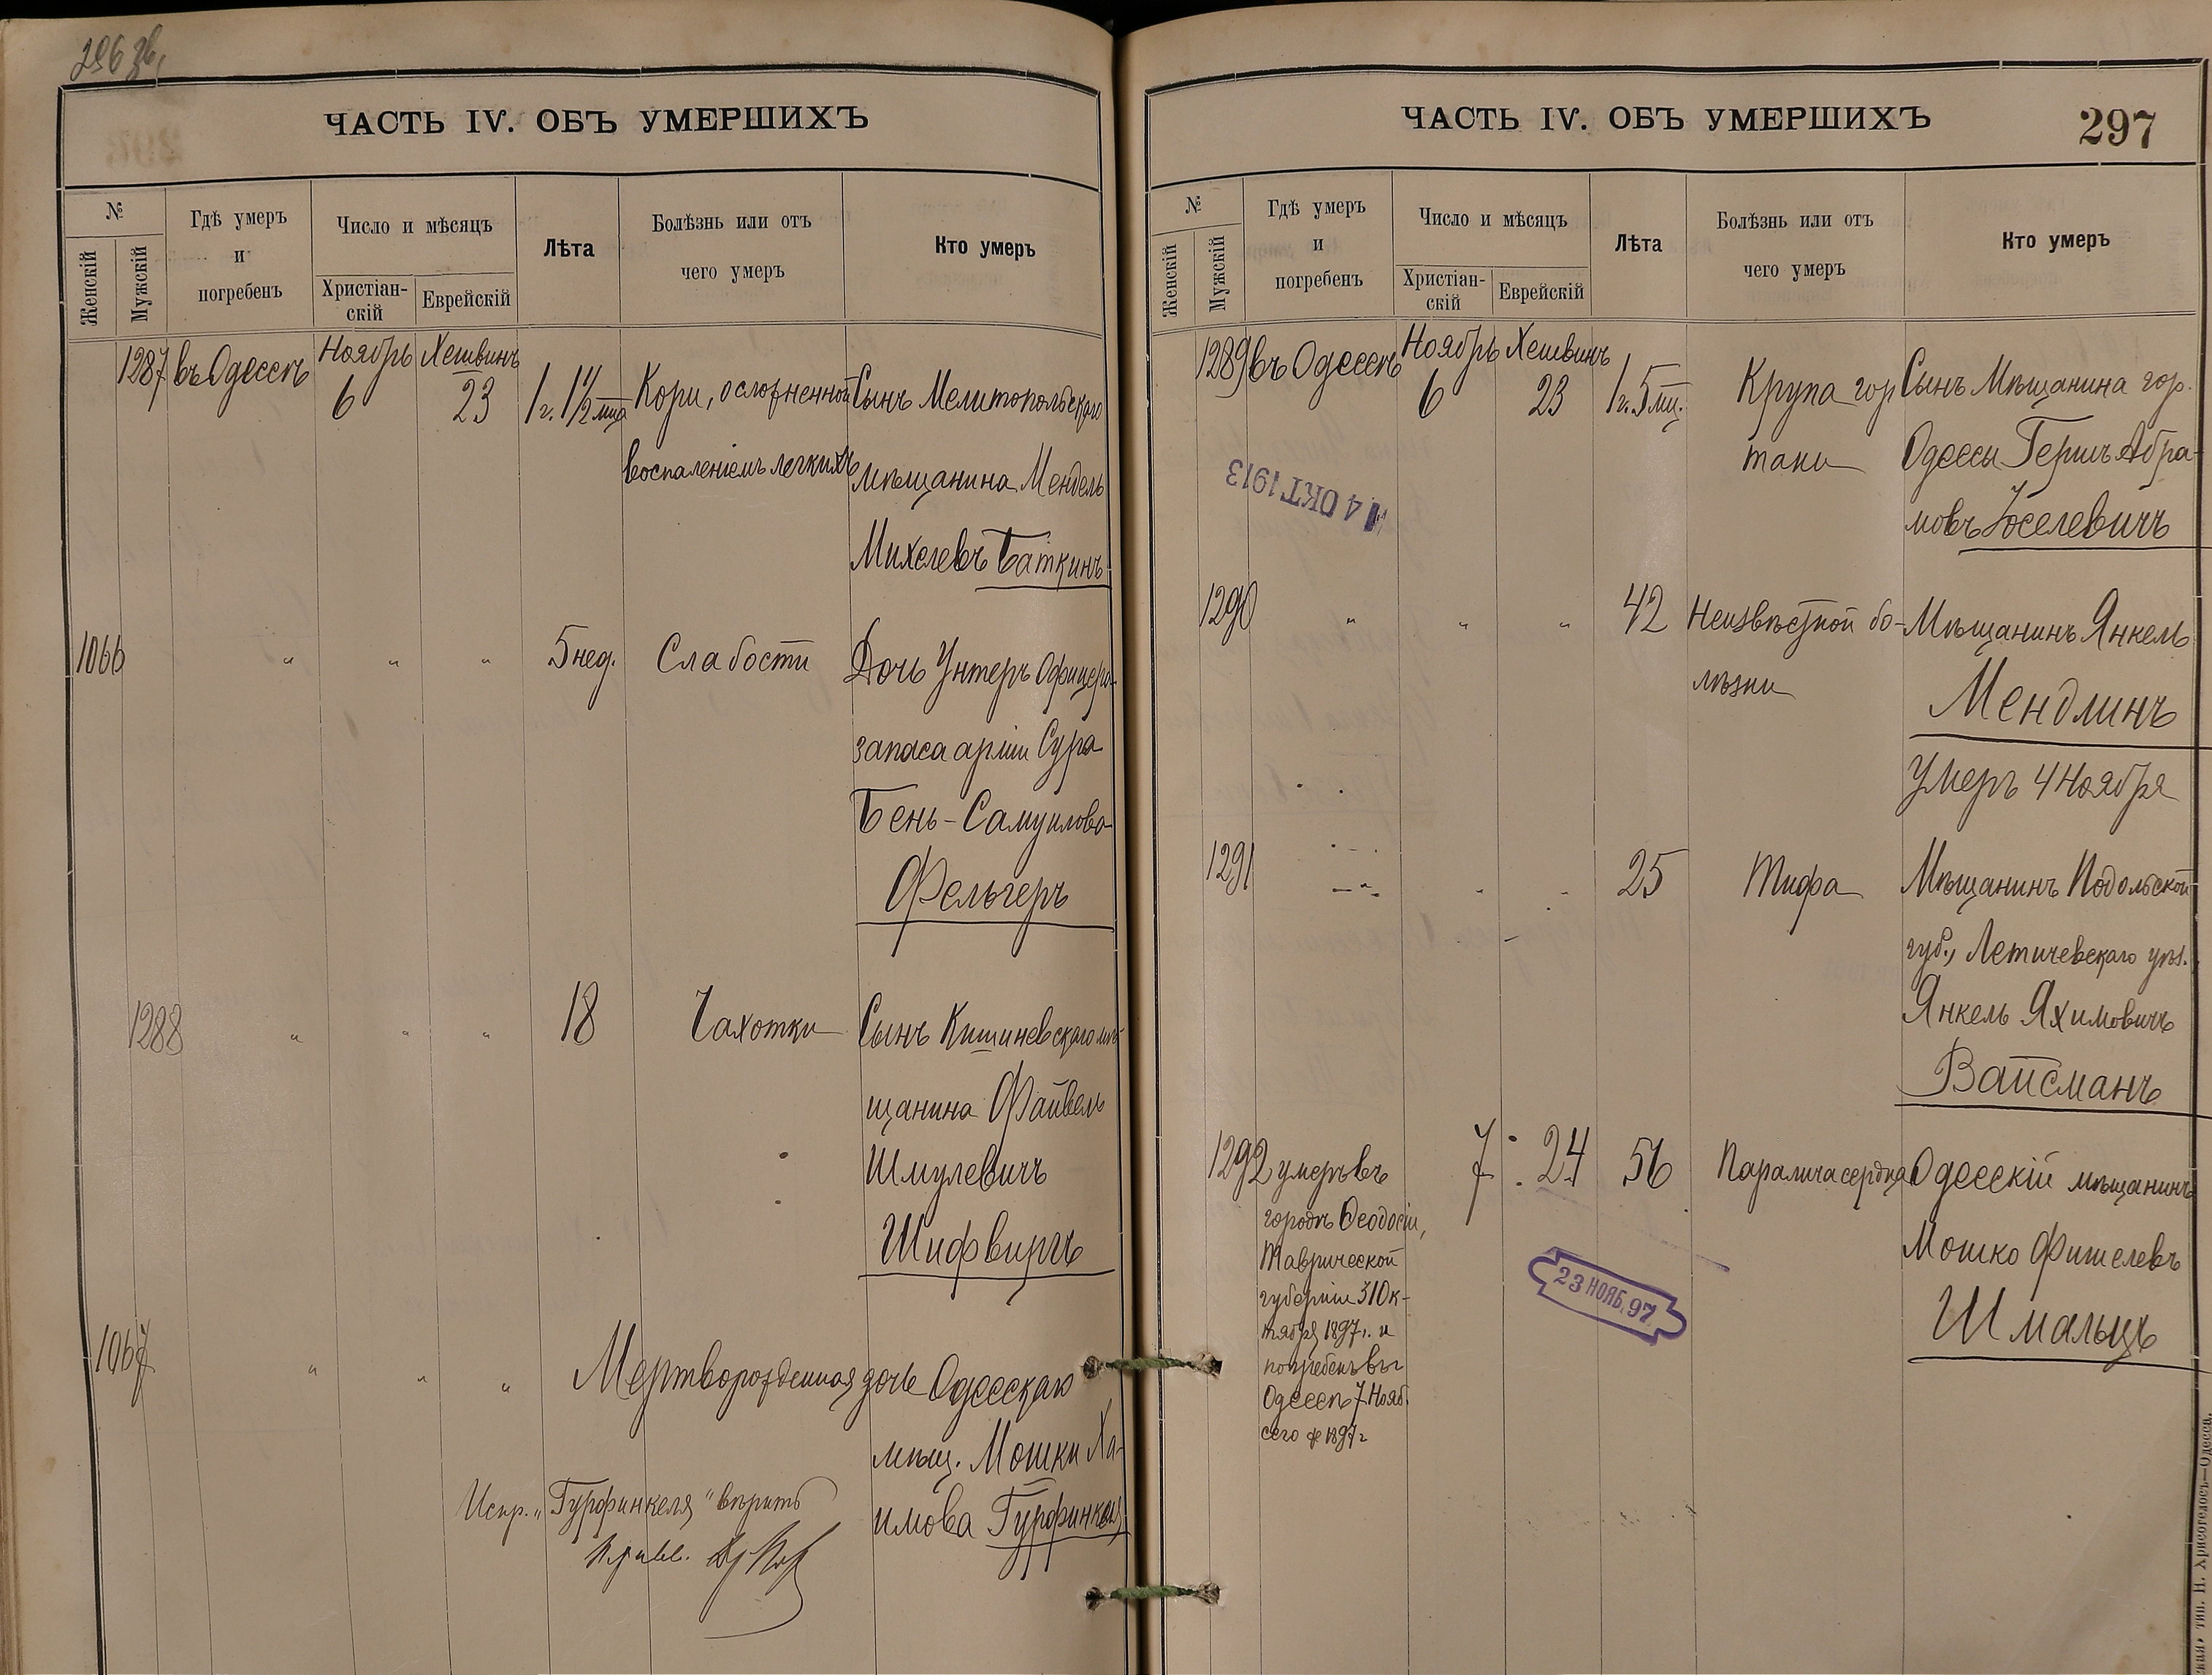 296 об.
ЧАСТЬ IV. ОБЪ УМЕРШИХЪ
№
Женскій
Мужскій
Гдѣ умеръ
и
погребенъ
Число и мѣсяцъ
Христіан-
скій
Еврейскій
Лѣта
Болѣзнь или отъ
чего умеръ
Кто умеръ
1287 въ Одессѣ Ноябрь 6 Хешвинъ 23 1 г. 1½ мца Кори, осложненной Сынъ Мелитопольскаго
воспаленіемъ легкихъ мѣщанина Мендель
Михелевъ Баткинъ
1066 " " " 5 нед. Слабости Дочь Унтеръ Офицера
запаса арміи Сура
Бень-Самуилова
Фельгеръ
1288 " " " 18 Чахотки Сынъ Кишиневскаго мѣ-
щанина Файвель
Шмулевичъ
Шифвиргъ
1067 " " " Мертворожденная дочь Одесскаго
мѣщ. Мошки Ха-
имова Гурфинкеля
Испр. "Гурфинкеля" вѣрить
ЧАСТЬ IV. ОБЪ УМЕРШИХЪ
297
№
Женскій
Мужскій
Гдѣ умеръ
и
погребенъ
Число и мѣсяцъ
Христіан-
скій
Еврейскій
Лѣта
Болѣзнь или отъ
чего умеръ
Кто умеръ
1289 въ Одессѣ Ноябрь 6 Хешвинъ 23 1 г. 5 мц. Крупа гор Сынъ Мѣщанина гор.
тани Одессы Гершъ Абра-
мовъ Юселевичъ
14 ОКТ 1913
1290 " " " 42 Неизвѣстной бо- Мѣщанинъ Янкель
лѣзни Мендлинъ
умеръ 4 Ноября
1291 " " " 25 Тифа Мѣщанинъ Подольской
губ., Летичевскаго уѣз.
Янкель Яхимовичъ
Вайсманъ
1292 умеръ въ 7 24 56 Паралича сердца Одесскій мѣщанинъ
городѣ Ѳеодосіи,
Таврической
губерніи 31 Ок-
тября 1897 г. и
погребенъ въ г
Одессѣ 7 Нояб.
сего 1897 г
Мошко Фишелевъ
Шмальцъ
23 НОЯБ. 97
тип. И. Хрисогелосъ—Одесса.